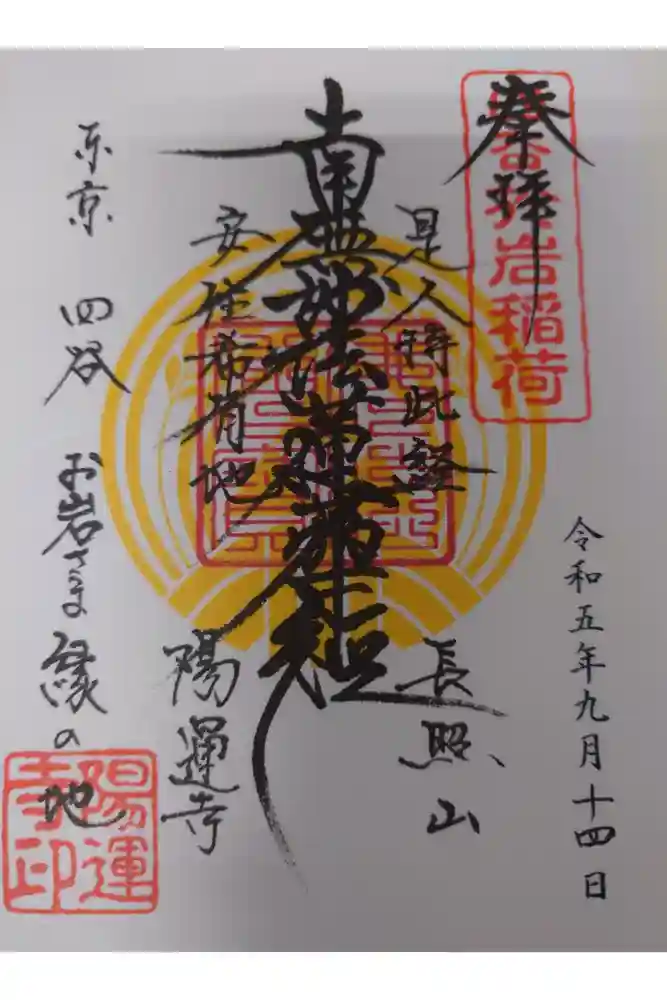 奉拝
岩稲荷
令和五年九月十四日
是人持此経
長照山
南無妙法蓮華経
安住希有地
陽運寺
東京 四谷 お岩さま縁の地
陽運
寺印